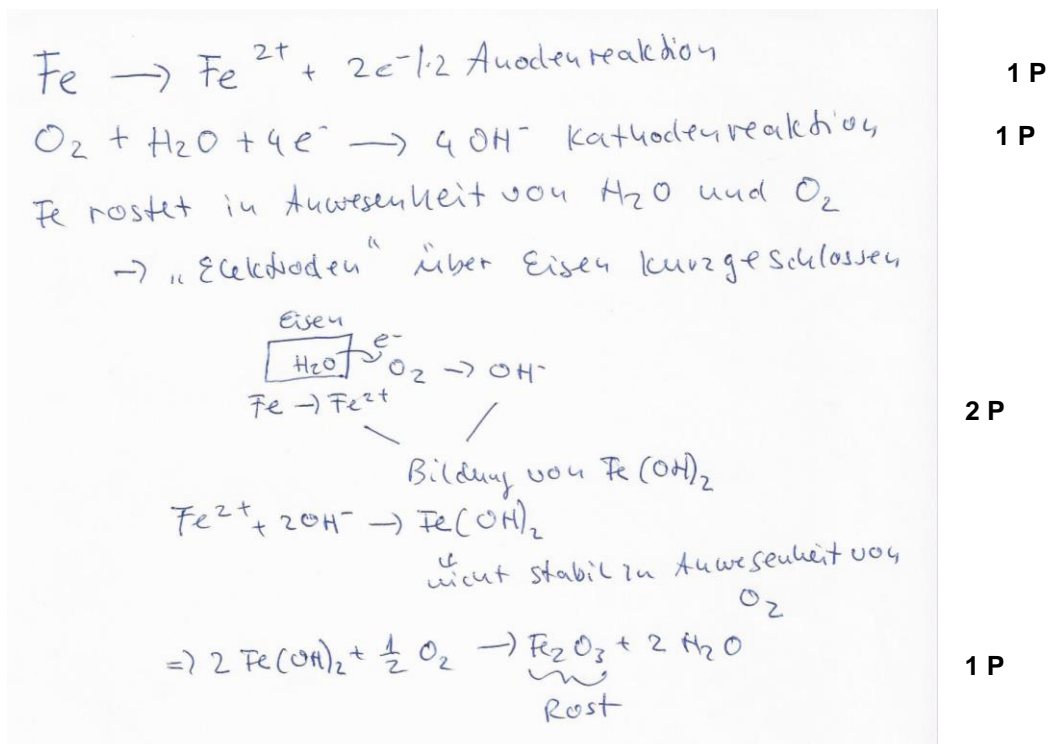 Fe → Fe²⁺ + 2e⁻ |·2 Anodenreaktion 1 P
O₂ + H₂O + 4e⁻ → 4 OH⁻ Kathodenreaktion 1 P
Fe rostet in Anwesenheit von H₂O und O₂
→ „Elektroden“ über Eisen kurzgeschlossen
Eisen
H₂O e⁻ O₂ → OH⁻
Fe → Fe²⁺
2 P
Bildung von Fe(OH)₂
Fe²⁺ + 2OH⁻ → Fe(OH)₂
↓
nicht stabil in Anwesenheit von
O₂
⇒ 2 Fe(OH)₂ + ½ O₂ → Fe₂O₃ + 2 H₂O 1 P
Rost